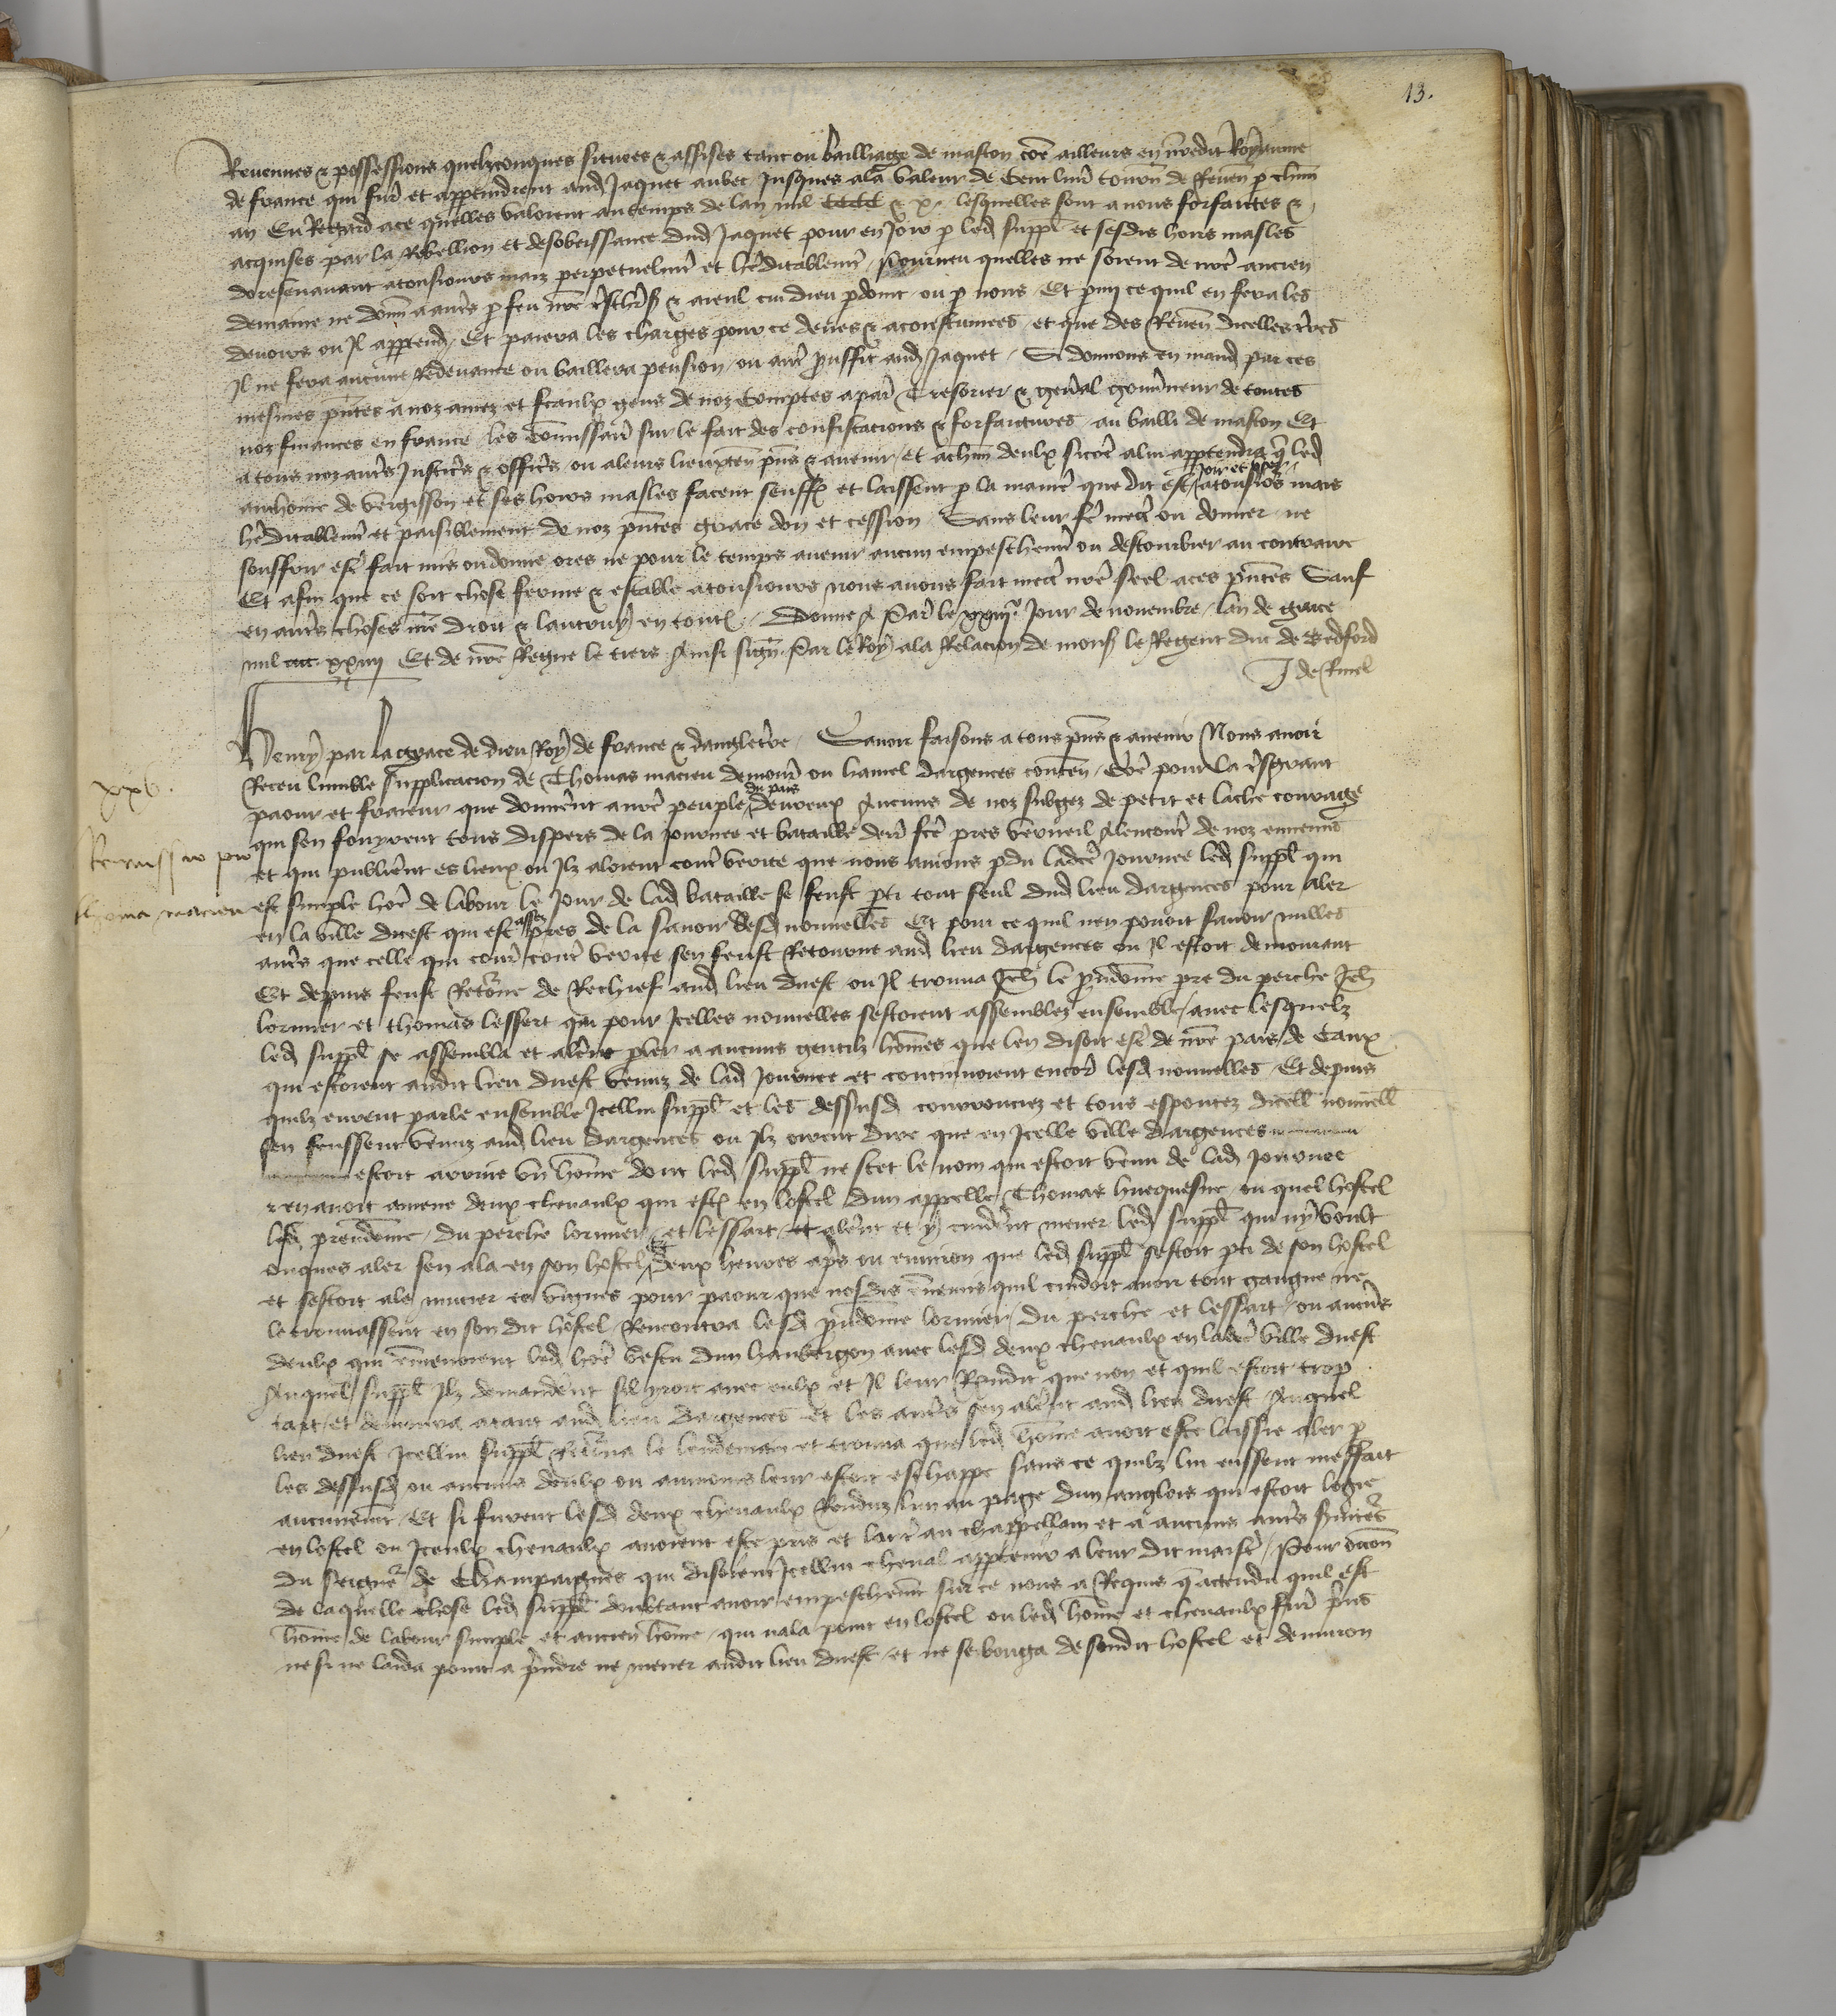 13.
Revenues & possessions quelzconques situees & assises tant ou bailliage de mascon cõe ailleurs en nredit Royaume
de france qui furẽt et appendrent aud Jaquet aubec Jusques ala valeur de Cent livr tourn de Reven p chun
an Eu Regard ace quelles valoient au temps de lan mil CCCC & x. lesquelles sont a nous forfaites &
acquises par la Rebellion et desobeissance dud Jaquet pour en Joir p led suppl et sesdis hoirs masles
doresenavant atousiours mais perpetuelmt et heditablemt Pourveu quelles ne soient de nre ancien
demaine ne donn a autrs p feu nre & aieul cui dieu pdoint ou p nous Et pmy ce quil en fera les
devoirs ou Il apptend Et paiera les charges pour ce deues & acoustumees et que des Reven dicelles trres
Il ne fera aucune Redevance ou baillera pension ou autr prouffit aud Jaquet Si donnons en mand par ces
mesmes pntes a noz amez et feaulx gens de noz Comptes apar Tresorier & genal gouvneur de toutes
noz finances en france les Comissaires sur le fait des confiscacions & forfaitures au bailli de mascon Et
a tous noz autrs Justicrs & officrs ou aleurs lieuxten pns & avenir et achun deulx sicõe alui apptendra q led
anthoine de vergisson et ses hoirs masles facent seuffr et laissent p la manie que dit est Joir et user atousiors mais
heditablemt et paisiblement de noz pntes grace don et cession Sans leur fe mectr ou donner ne
souffrir estr fait mis ou donne ores ne pour le temps avenir aucun empeschemt ou destourbier au contraire
Et afin que ce soit chose ferme & estable atousiours nous avons fait mectr nre seel aces pntes Sauf
en autrs choses nre droit & lautruy en toutes Donne A Par le xxiiii.e Jour de novembre lan de grace
mil cccc. xxiiii Et de nre Regne le tiers Ainsi sign Par le Roy ala Relacion de mons le Regent duc de Bedford
J de Rinel
xxv.
Remissio pro
thoma macieu
Henry par la grace de dieu Roy de france & dangletrre Savoir faisons a tous pns & avenir Nous avoir
Receu lumble supplicacion de Thomas macieu demourãt ou hamel dargences conten Cõe pour la
paour et fraieur que donnerent anre peuple du pais devreux Aucuns de noz subgez de petit et lache courage
qui sen fouyrent tous dispers de la journee et bataille derr fce pres verneil Alencontr de noz ennemis
et qui publierent es lieux ou Ilz aloient contr verite que nous avions pdu ladce Journee led suppl qui
est simple hõe de labour le Jour de lad bataille se feust pti tout seul dud lieu dargences pour aler
en la ville duest qui est assez pres de la savoir desd nouvelles Et pour ce quil nen povoit savoir nulles
autrs que celle qui couroit contr verite sen feust Retourne aud lieu dargences ou Il estoit demourant
Et depuis feust Retorne de Rechief aud lieu duest ou Il trouva Jeh le preudõme pre du perche Jeh
lorimier et thomas lessert qui pour Icelles nouvelles sestoient assemblez ensemble avec lesquelz
led suppl se assembla et alerẽt pler a aucuns gentilz hõmes que len disoit estr de nre pais de Caux
qui estoient audit lieu duest venuz de lad Journee et continuoient encor lesd nouvelles Et depuis
quilz eurent parle ensemble Icellui suppl et les dessusd courrouciez et tous espoventez dicell nouvell
sen feussent venuz aud lieu dargences ou Ilz oirent dire que en Icelle ville dargences
estoit arrive un hõme dont led suppl ne scet le nom qui estoit venu de lad Journee
& en avoit amene deux chevaulx qui estoient en lostel dun appelle Thomas huequesne ou quel hostel
lesd preudõme du perche lorimier et lessart et alerẽt et y cuiderẽt mener led suppl qui ny voult
onques aler sen ala en son hostel & deux heures aps ou environ que led suppl sestoit pti de son hostel
et sestoit ale mucier es vignes pour paour que nosdis ennemis quil cuidoit avoir tout gaigne ne
le trouvassent en son dit hostel Rencontra lesd preudõme lorimier du perche et lessart ou aucuns
deulx qui emmenoient led hõe vestu dun haubergon avec lesd deux chevaulx en ladce ville duest
Auquel suppl Ilz demanderẽt sil yroit avec eulx et Il leur Rendit que non et quil estoit trop
tart et demoura atant aud lieu dargences Et les autrs sen alerẽt aud lieu duest Auquel
lieu duest Icellui suppl Retorna le lendemain et trouva que led hõme avoit este laissie aler p
les dessusd ou aucuns deulx ou aumoins leur estoit eschappe sans ce quilz lui eussent meffait
aucunemt Et si furent lesd deux chevaulx Renduz lun au page dun anglois qui estoit logie
en lostel ou Iceulx chevaulx avoient este pris et lautr au chappellain et a aucuns autrs svitrs
du seigneur de Champaignes qui disoient Icellui cheval apptenir a leur dit maistr Pour occon
de laquelle chose led suppl doubtant avoir empeschemt sur ce nous a Requis q actendu quil est
hõme de labour simple et ancien hõme qui nala point en lostel ou led hõme et chevaulx furẽt pris
ne si ne laida point a prendre ne mener audit lieu duest et ne se bouga de sondit hostel et denviron